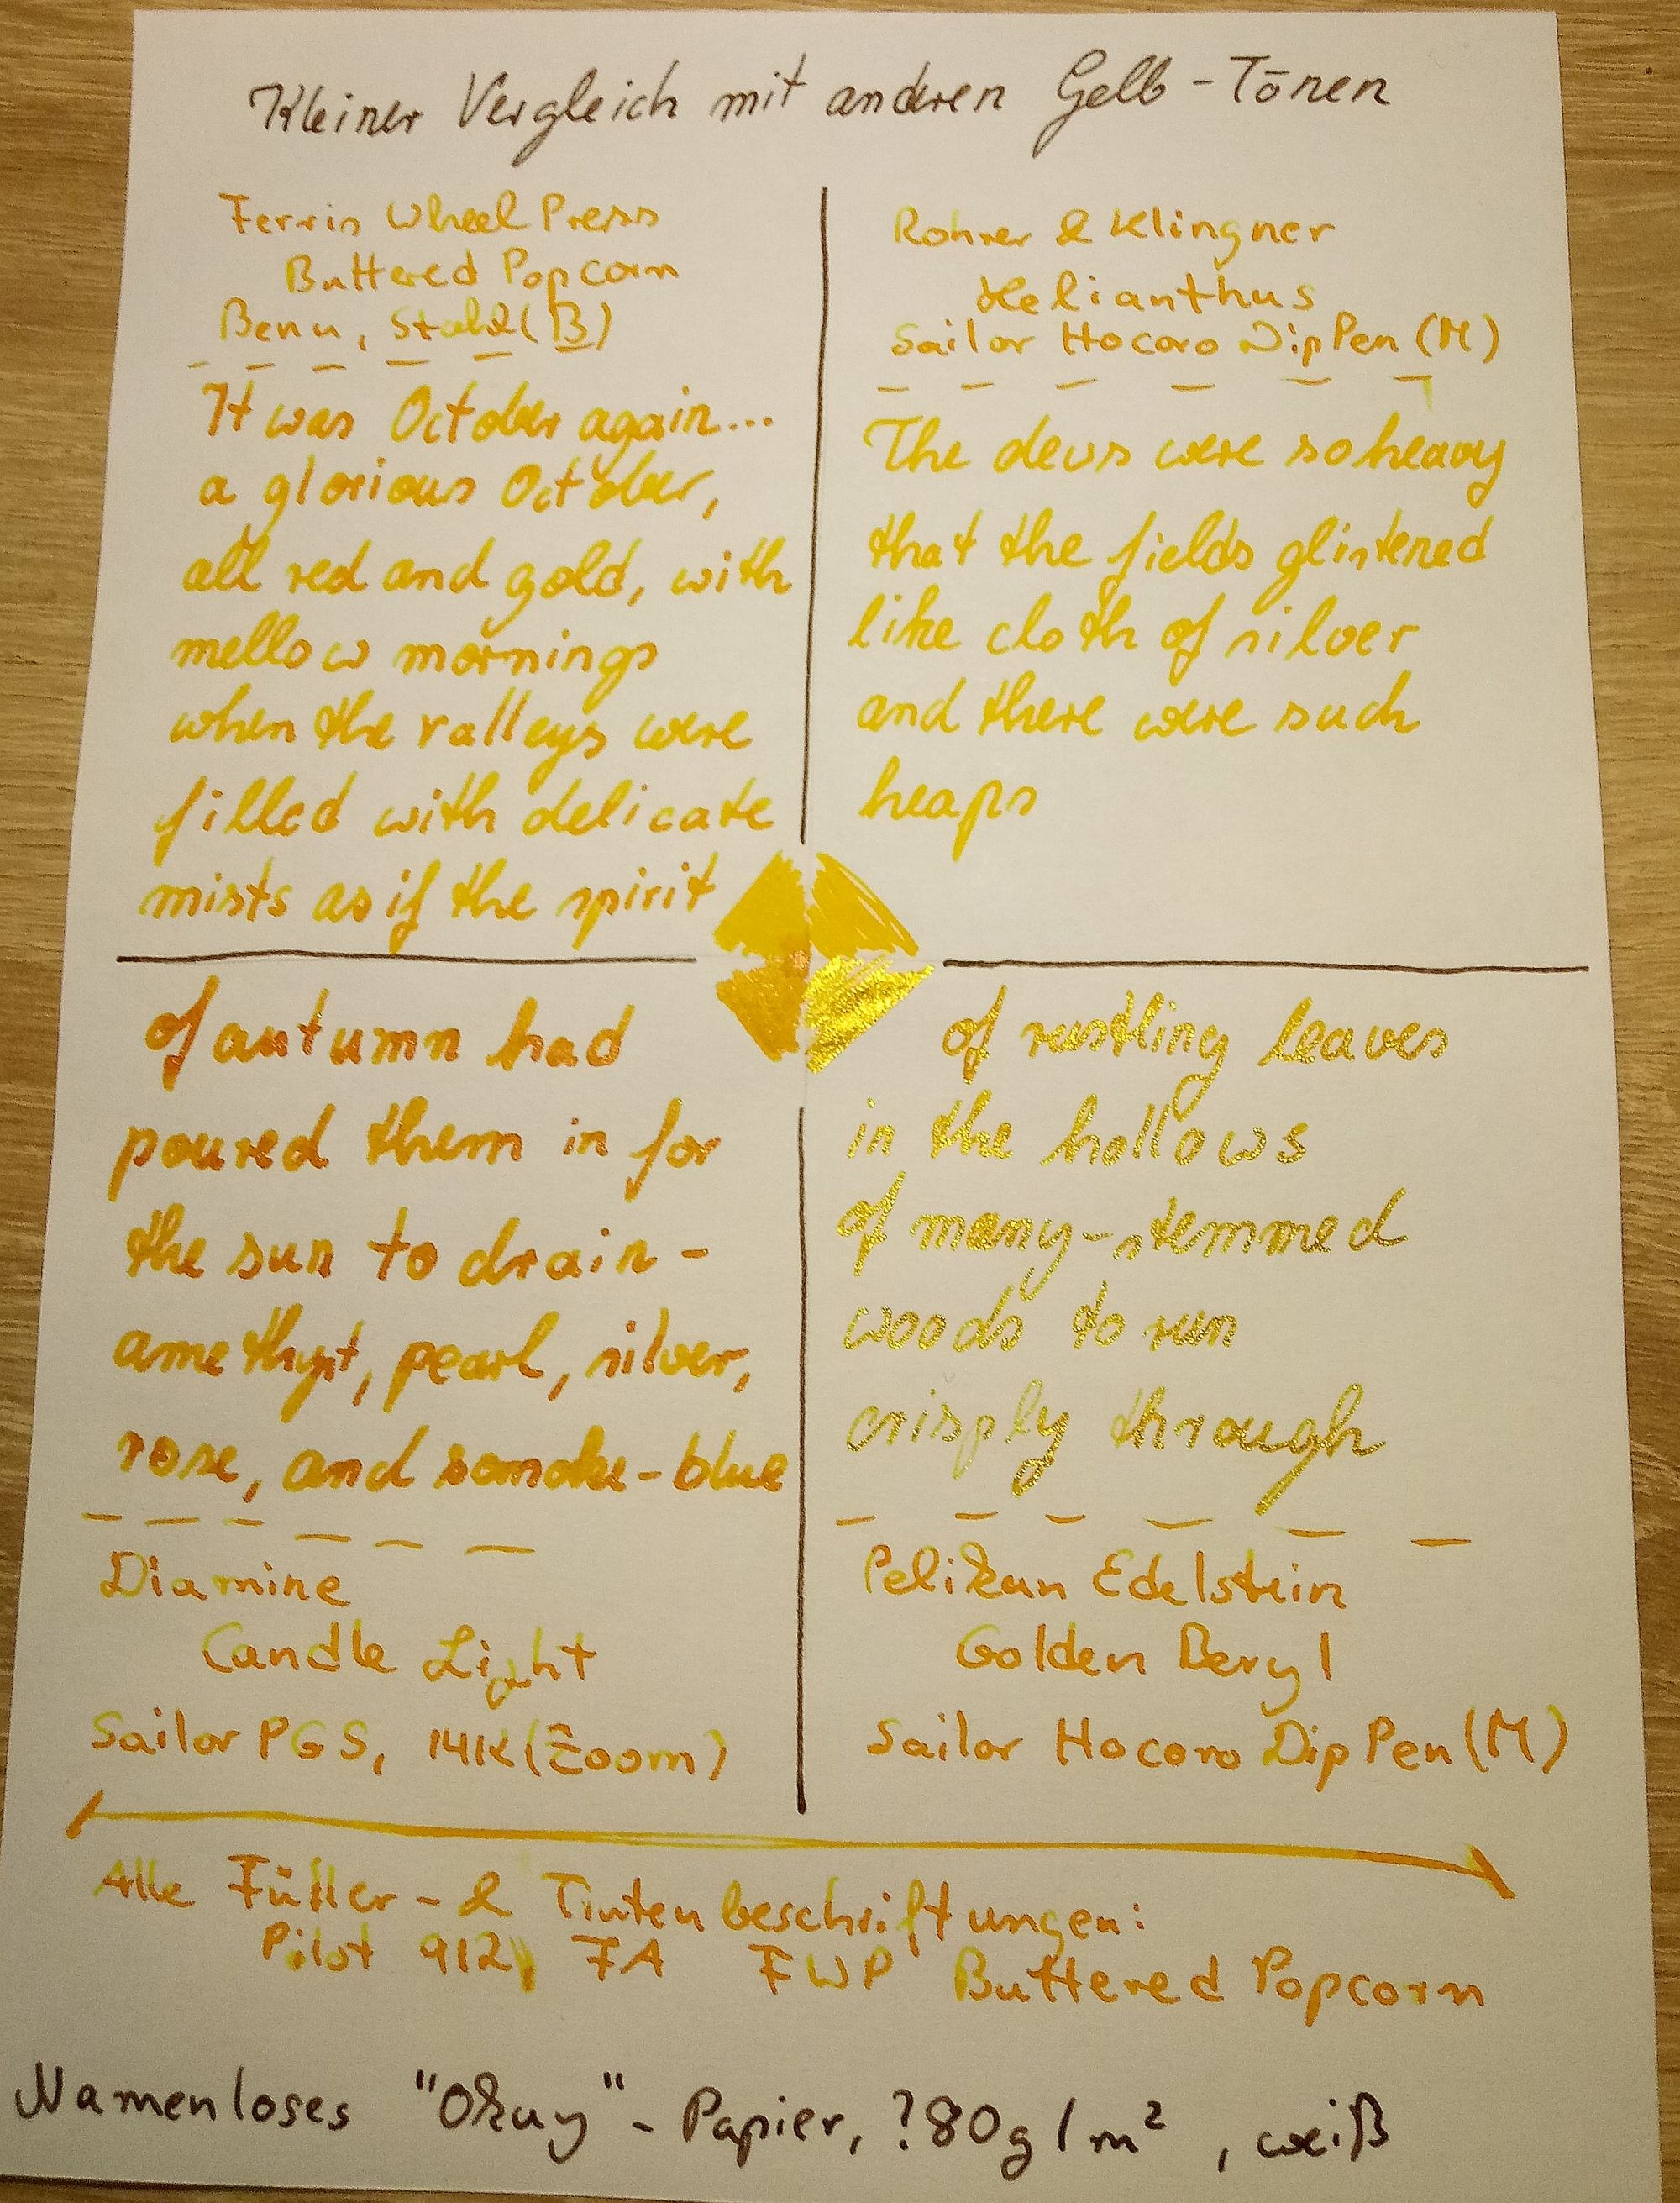 Kleiner Vergleich mit anderen Gelb-Tönen
Ferris Wheel Press
Buttered Popcorn
Benu, Stahl (B)
It was October again...
a glorious October,
all red and gold, with
mellow mornings
when the valleys were
filled with delicate
mists as if the spirit
of autumn had
poured them in for
the sun to drain -
amethyst, pearl, silver,
rose, and somoke-blue
Diamine
Candle Light
Sailor PGS, 14K (Zoom)
Rohrer & Klingner
Helianthus
Sailor Hocoro Dip Pen (M)
The dews were so heavy
that the fields glistened
like cloth of silver
and there were such
heaps
of rustling leaves
in the hollows
of many-stemmed
woods to run
crisply through
Pelikan Edelstein
Golden Beryl
Sailor Hocoro Dip Pen (M)
Alle Füller- & Tintenbeschriftungen:
Pilot 912, FA FWP Buttered Popcorn
Namenloses "Okay" - Papier, ?80g/m², weiß